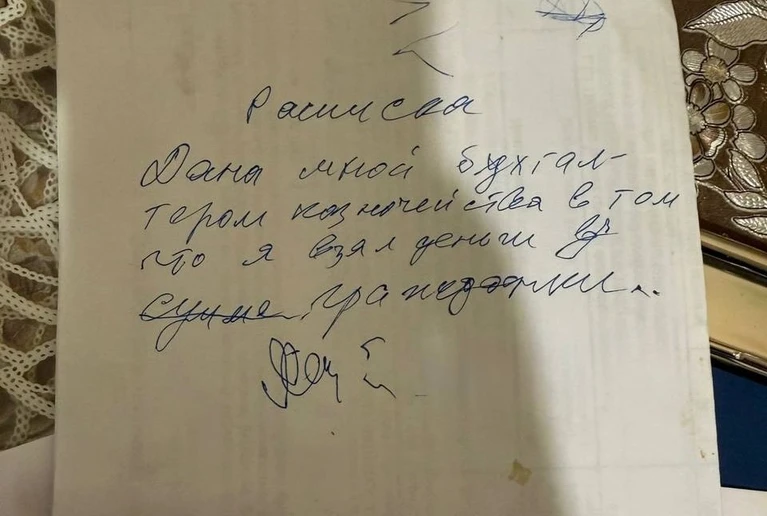 Расписка
Дана мной бухгал-
тером казначейства в том
что я взял деньги у
сумме гражданки..